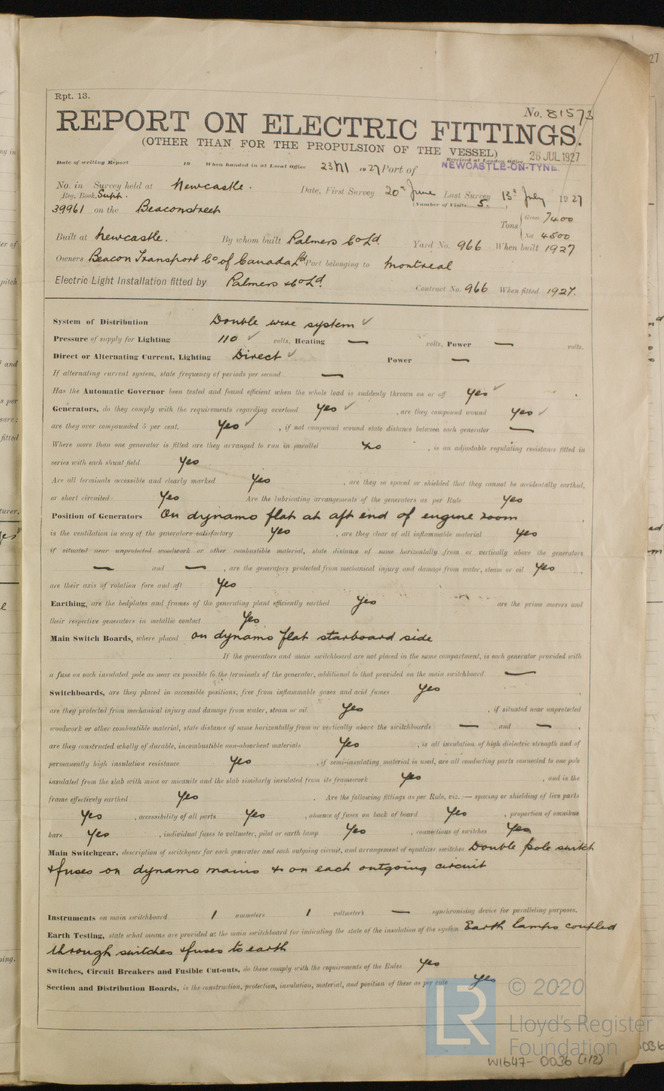 Rpt. 13.
No. 81573
REPORT ON ELECTRIC FITTINGS.
(OTHER THAN FOR THE PROPULSION OF THE VESSEL)
Received at London Office 26 JUL 1927
Date of writing Report 19 When handed in at Local Office 23 VII 1927 Port of NEWCASTLE-ON-TYNE
No. in Survey held at Newcastle. Date, First Survey 20th June Last Survey 13th July 1927
Reg. Book. Supt. (Number of Visits 5.
39961 on the Beaconstreet Tons { Gross 7400
Net 4500
Built at Newcastle. By whom built Palmers Co Ld. Yard No. 966 When built 1927
Owners Beacon Transport Co of Canada Ld Port belonging to Montreal
Electric Light Installation fitted by Palmers & Co Ld. Contract No. 966 When fitted 1927.
System of Distribution Double wire system ✓
Pressure of supply for Lighting 110 ✓ volts, Heating — volts, Power — volts.
Direct or Alternating Current, Lighting Direct ✓ Power —
If alternating current system, state frequency of periods per second —
Has the Automatic Governor been tested and found efficient when the whole load is suddenly thrown on or off Yes ✓
Generators, do they comply with the requirements regarding overload Yes ✓ , are they compound wound Yes ✓
are they over compounded 5 per cent. Yes ✓ , if not compound wound state distance between each generator —
Where more than one generator is fitted are they arranged to run in parallel No , is an adjustable regulating resistance fitted in
series with each shunt field Yes
Are all terminals accessible and clearly marked Yes , are they so spaced or shielded that they cannot be accidentally earthed,
or short circuited Yes Are the lubricating arrangements of the generators as per Rule Yes
Position of Generators On dynamo flat at aft end of engine room
is the ventilation in way of the generators satisfactory Yes , are they clear of all inflammable material Yes
if situated near unprotected woodwork or other combustible material, state distance of same horizontally from or vertically above the generators
— and — , are the generators protected from mechanical injury and damage from water, steam or oil Yes ,
are their axis of rotation fore and aft Yes
Earthing, are the bedplates and frames of the generating plant efficiently earthed Yes are the prime movers and
their respective generators in metallic contact Yes
Main Switch Boards, where placed On dynamo flat starboard side
If the generators and main switchboard are not placed in the same compartment, is each generator provided with
a fuse on each insulated pole as near as possible to the terminals of the generator, additional to that provided on the main switchboard —
Switchboards, are they placed in accessible positions, free from inflammable gases and acid fumes Yes
are they protected from mechanical injury and damage from water, steam or oil Yes , if situated near unprotected
woodwork or other combustible material, state distance of same horizontally from or vertically above the switchboards — and — ,
are they constructed wholly of durable, incombustible non-absorbent materials Yes , is all insulation of high dielectric strength and of
permanently high insulation resistance Yes , if semi-insulating material is used, are all conducting parts connected to one pole
insulated from the slab with mica or micanite and the slab similarly insulated from its framework Yes , and is the
frame effectively earthed Yes . Are the following fittings as per Rule, viz.:— spacing or shielding of live parts
Yes , accessibility of all parts Yes , absence of fuses on back of board Yes , proportion of omnibus
bars Yes , individual fuses to voltmeter, pilot or earth lamp Yes , connections of switches Yes
Main Switchgear, description of switchgear for each generator and each outgoing circuit, and arrangement of equalizer switches Double pole switch
& fuses on dynamo mains & on each outgoing circuit
Instruments on main switchboard 1 ammeters 1 voltmeters — synchronising device for paralleling purposes.
Earth Testing, state what means are provided at the main switchboard for indicating the state of the insulation of the system Earth lamps coupled
through switches & fuses to earth
Switches, Circuit Breakers and Fusible Cut-outs, do these comply with the requirements of the Rules Yes
Section and Distribution Boards, is the construction, protection, insulation, material, and position of these as per rule Yes
LR © 2020
Lloyd's Register
Foundation
W1647-0036 (1/2)